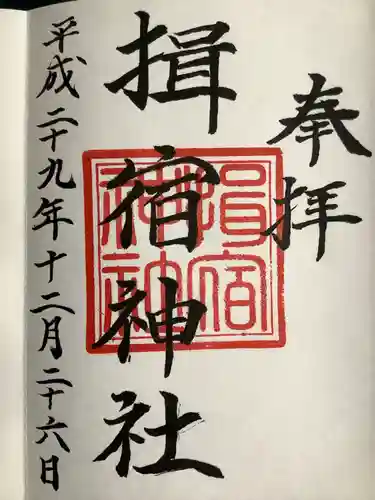 奉拝
揖宿神社
平成二十九年十二月二十六日
揖宿
神社